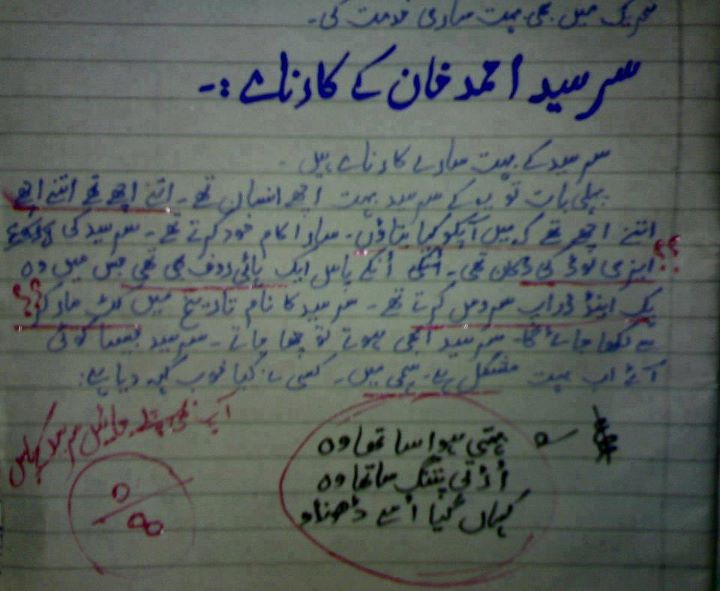 تحریک میں بھی بہت ساری خدمت کی۔
سر سید احمد خان کے کارنامے :-
سر سید کے بہت سارے کارنامے ہیں۔
پہلی بات تو یہ کے سر سید بہت اچھے انسان تھے۔ اتنے اچھے تھے اتنے اچھے
اتنے اچھے تھے کہ میں آپکو کیا بتاؤں۔ سارا کام خود کرتے تھے۔ سر سید کی
ایزی لوڈ کی دکان تھی۔ انکے پاس ایک ہائی روف بھی تھی جس میں وہ
پک اینڈ ڈراپ سروس کرتے تھے۔ سر سید کا نام تاریخ میں مار کر
سے لکھا جائے گا۔ سر سید ابھی ہوتے تو چھا جاتے۔ سر سید جیسا کوئی
آئے اب بہت مشکل ہے۔ سچی میں۔ کسی نے کیا خوب کہہ دیا ہے:
بہتی ہوا سا تھا وہ
اُڑتی پتنگ سا تھا وہ
کہاں گیا اُسے ڈھونڈو
آپ
0
00